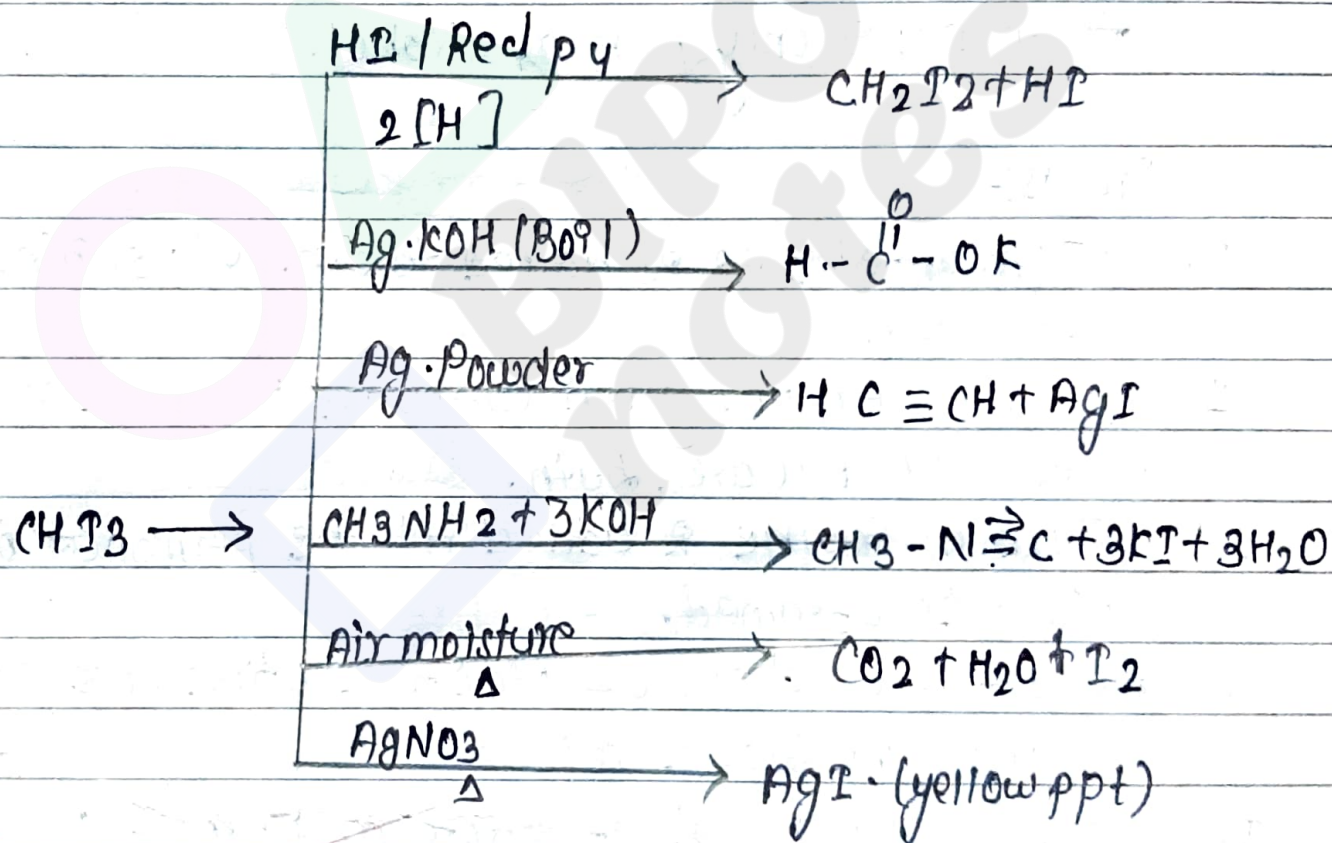 HI / Red p4
2 [H]
CH2I2 + HI
Ag. KOH (Boil)
O
H - C - OK
Ag. Powder
H C ≡ CH + AgI
CHI3
CH3 NH2 + 3KOH
CH3 - N ≡ C + 3KI + 3H2O
Air moisture
Δ
CO2 + H2O + I2
AgNO3
Δ
AgI. (yellow ppt)
Bipo
notes